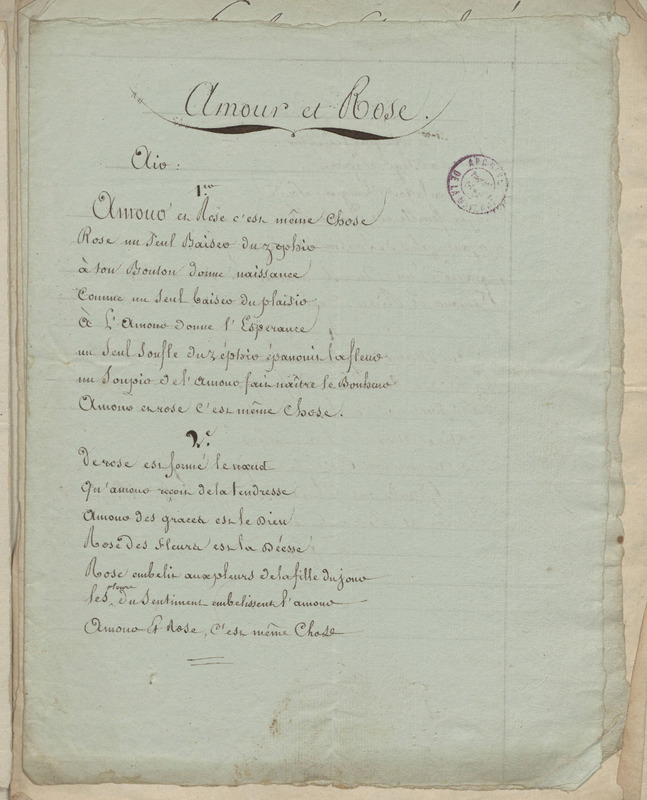 Amour et Rose.
Air :
1.er
Amour et Rose c'est même chose
Rose un seul Baiser du zéphir
à ton Bouton donne naissance
Comme un seul baiser du plaisir
à L'Amour donne l'Esperance
un seul souffle du zéphir épanouit la fleur
un soupir de l'amour fait naître le Bonheur
Amour et rose c'est même chose.
2.e
De rose est formé le nœud
Qu'amour reçoit de la tendresse
Amour des graces est le Dieu
Rose des fleurs est la Déesse
Rose embelit aux pleurs de la fille du jour
les pleurs du sentiment embelissent l'amour
Amour et Rose, c'est même Chose